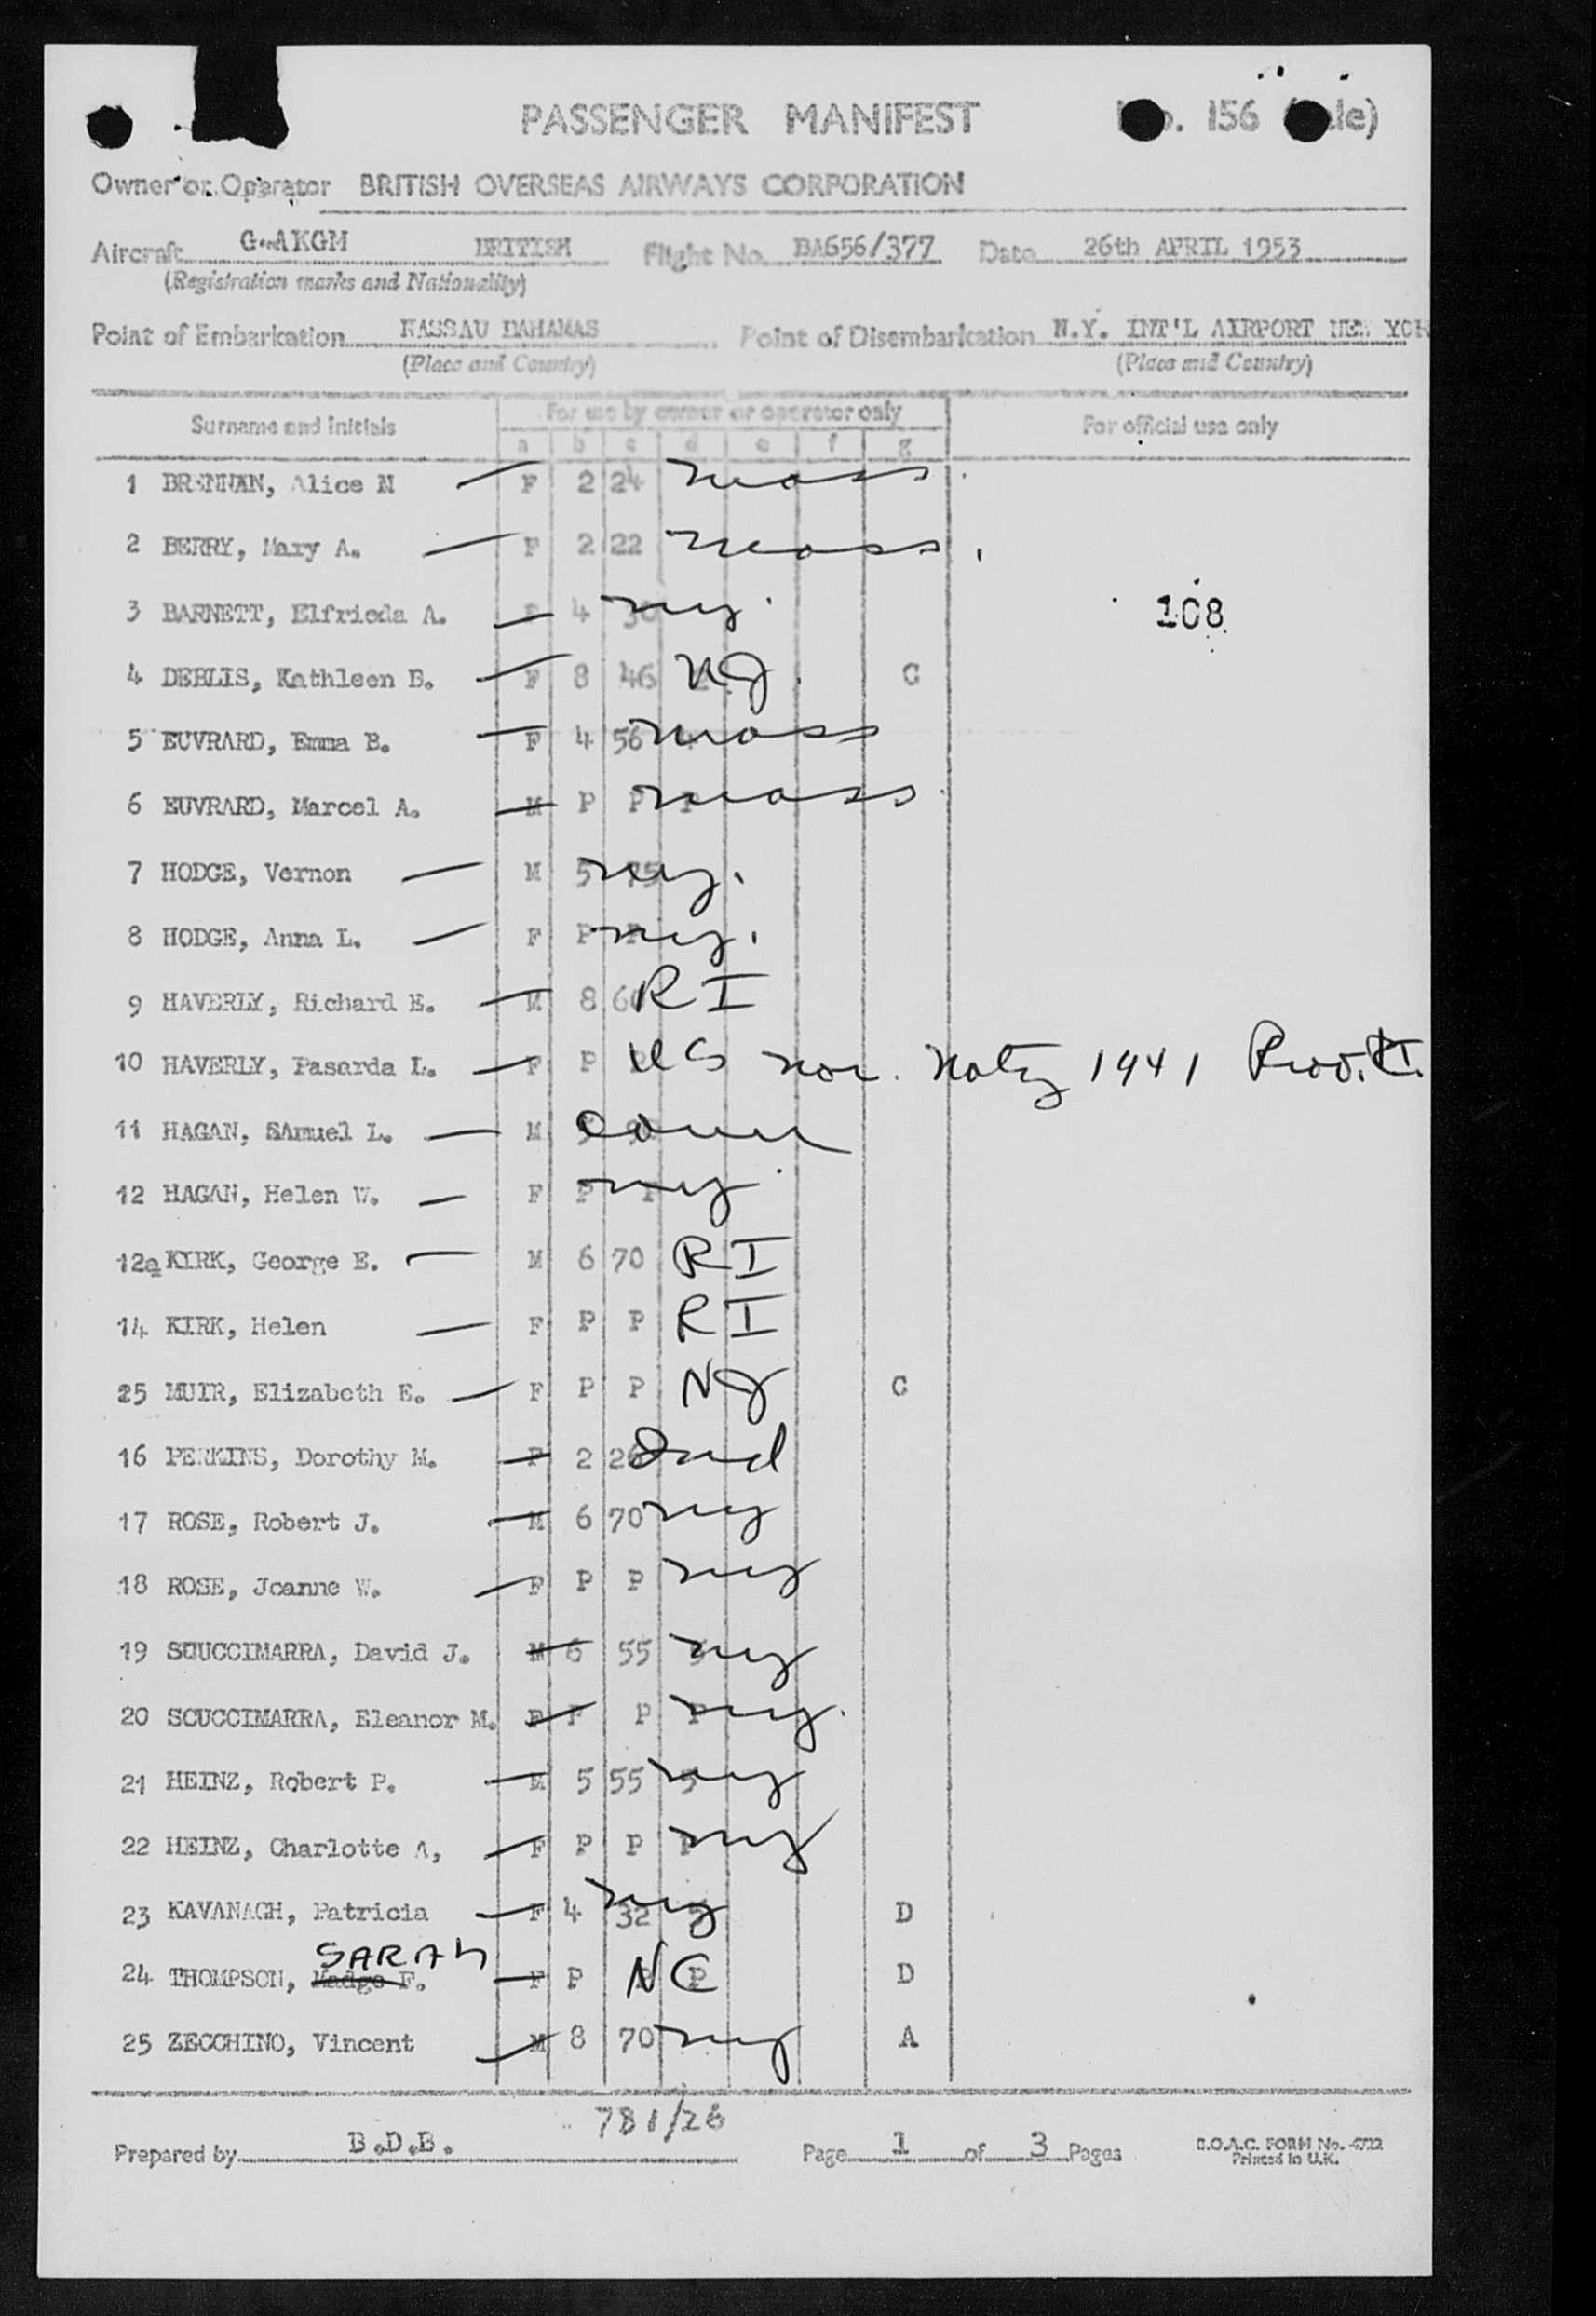 PASSENGER MANIFEST
156
Owner or Operator BRITISH OVERSEAS AIRWAYS CORPORATION
Aircraft G-AKGM BRITISH Flight No. BA656/377 Date 26th APRIL 1953
(Registration marks and Nationality)
Point of Embarkation NASSAU BAHAMAS Point of Disembarkation N.Y. INT'L AIRPORT NEW YORK
(Place and Country) (Place and Country)
Surname and initials For use by owner or operator only For official use only
a b c d e f g
1 BRENNAN, Alice M F 2 24 mass.
2 BERRY, Mary A. F 2 22 mass.
3 BARNETT, Elfrieda A. 4 30 ny. 108
4 DEBLIS, Kathleen B. F 8 46 NJ. C
5 EUVRARD, Emma B. F 4 56 mass
6 EUVRARD, Marcel A. M P P P mass
7 HODGE, Vernon M 5 75 ny.
8 HODGE, Anna L. F P P ny.
9 HAVERLY, Richard E. M 8 60 RI
10 HAVERLY, Pasarda L. F P US nor. Natz 1941 Prov. RI.
11 HAGAN, SAmuel L. M Conn
12 HAGAN, Helen W. F P P ny
12a KIRK, George E. M 6 70 RI
14 KIRK, Helen F P P RI
25 MUIR, Elizabeth E. F P P NJ C
16 PERKINS, Dorothy M. F 2 26 Ind
17 ROSE, Robert J. M 6 70 ny
18 ROSE, Joanne W. F P P ny
19 SCUCCIMARRA, David J. M 6 55 5 ny
20 SCUCCIMARRA, Eleanor M. F P P P ny.
21 HEINZ, Robert P. M 5 55 5 ny
22 HEINZ, Charlotte A, F P P P ny
23 KAVANAGH, Patricia F 4 32 5 ny D
SARAH
24 THOMPSON, Madge F. F P P P NC D
25 ZECCHINO, Vincent M 8 70 ny A
781/26
Prepared by B.D.B. Page 1 of 3 Pages B.O.A.C. FORM No. 4722
Printed in U.K.